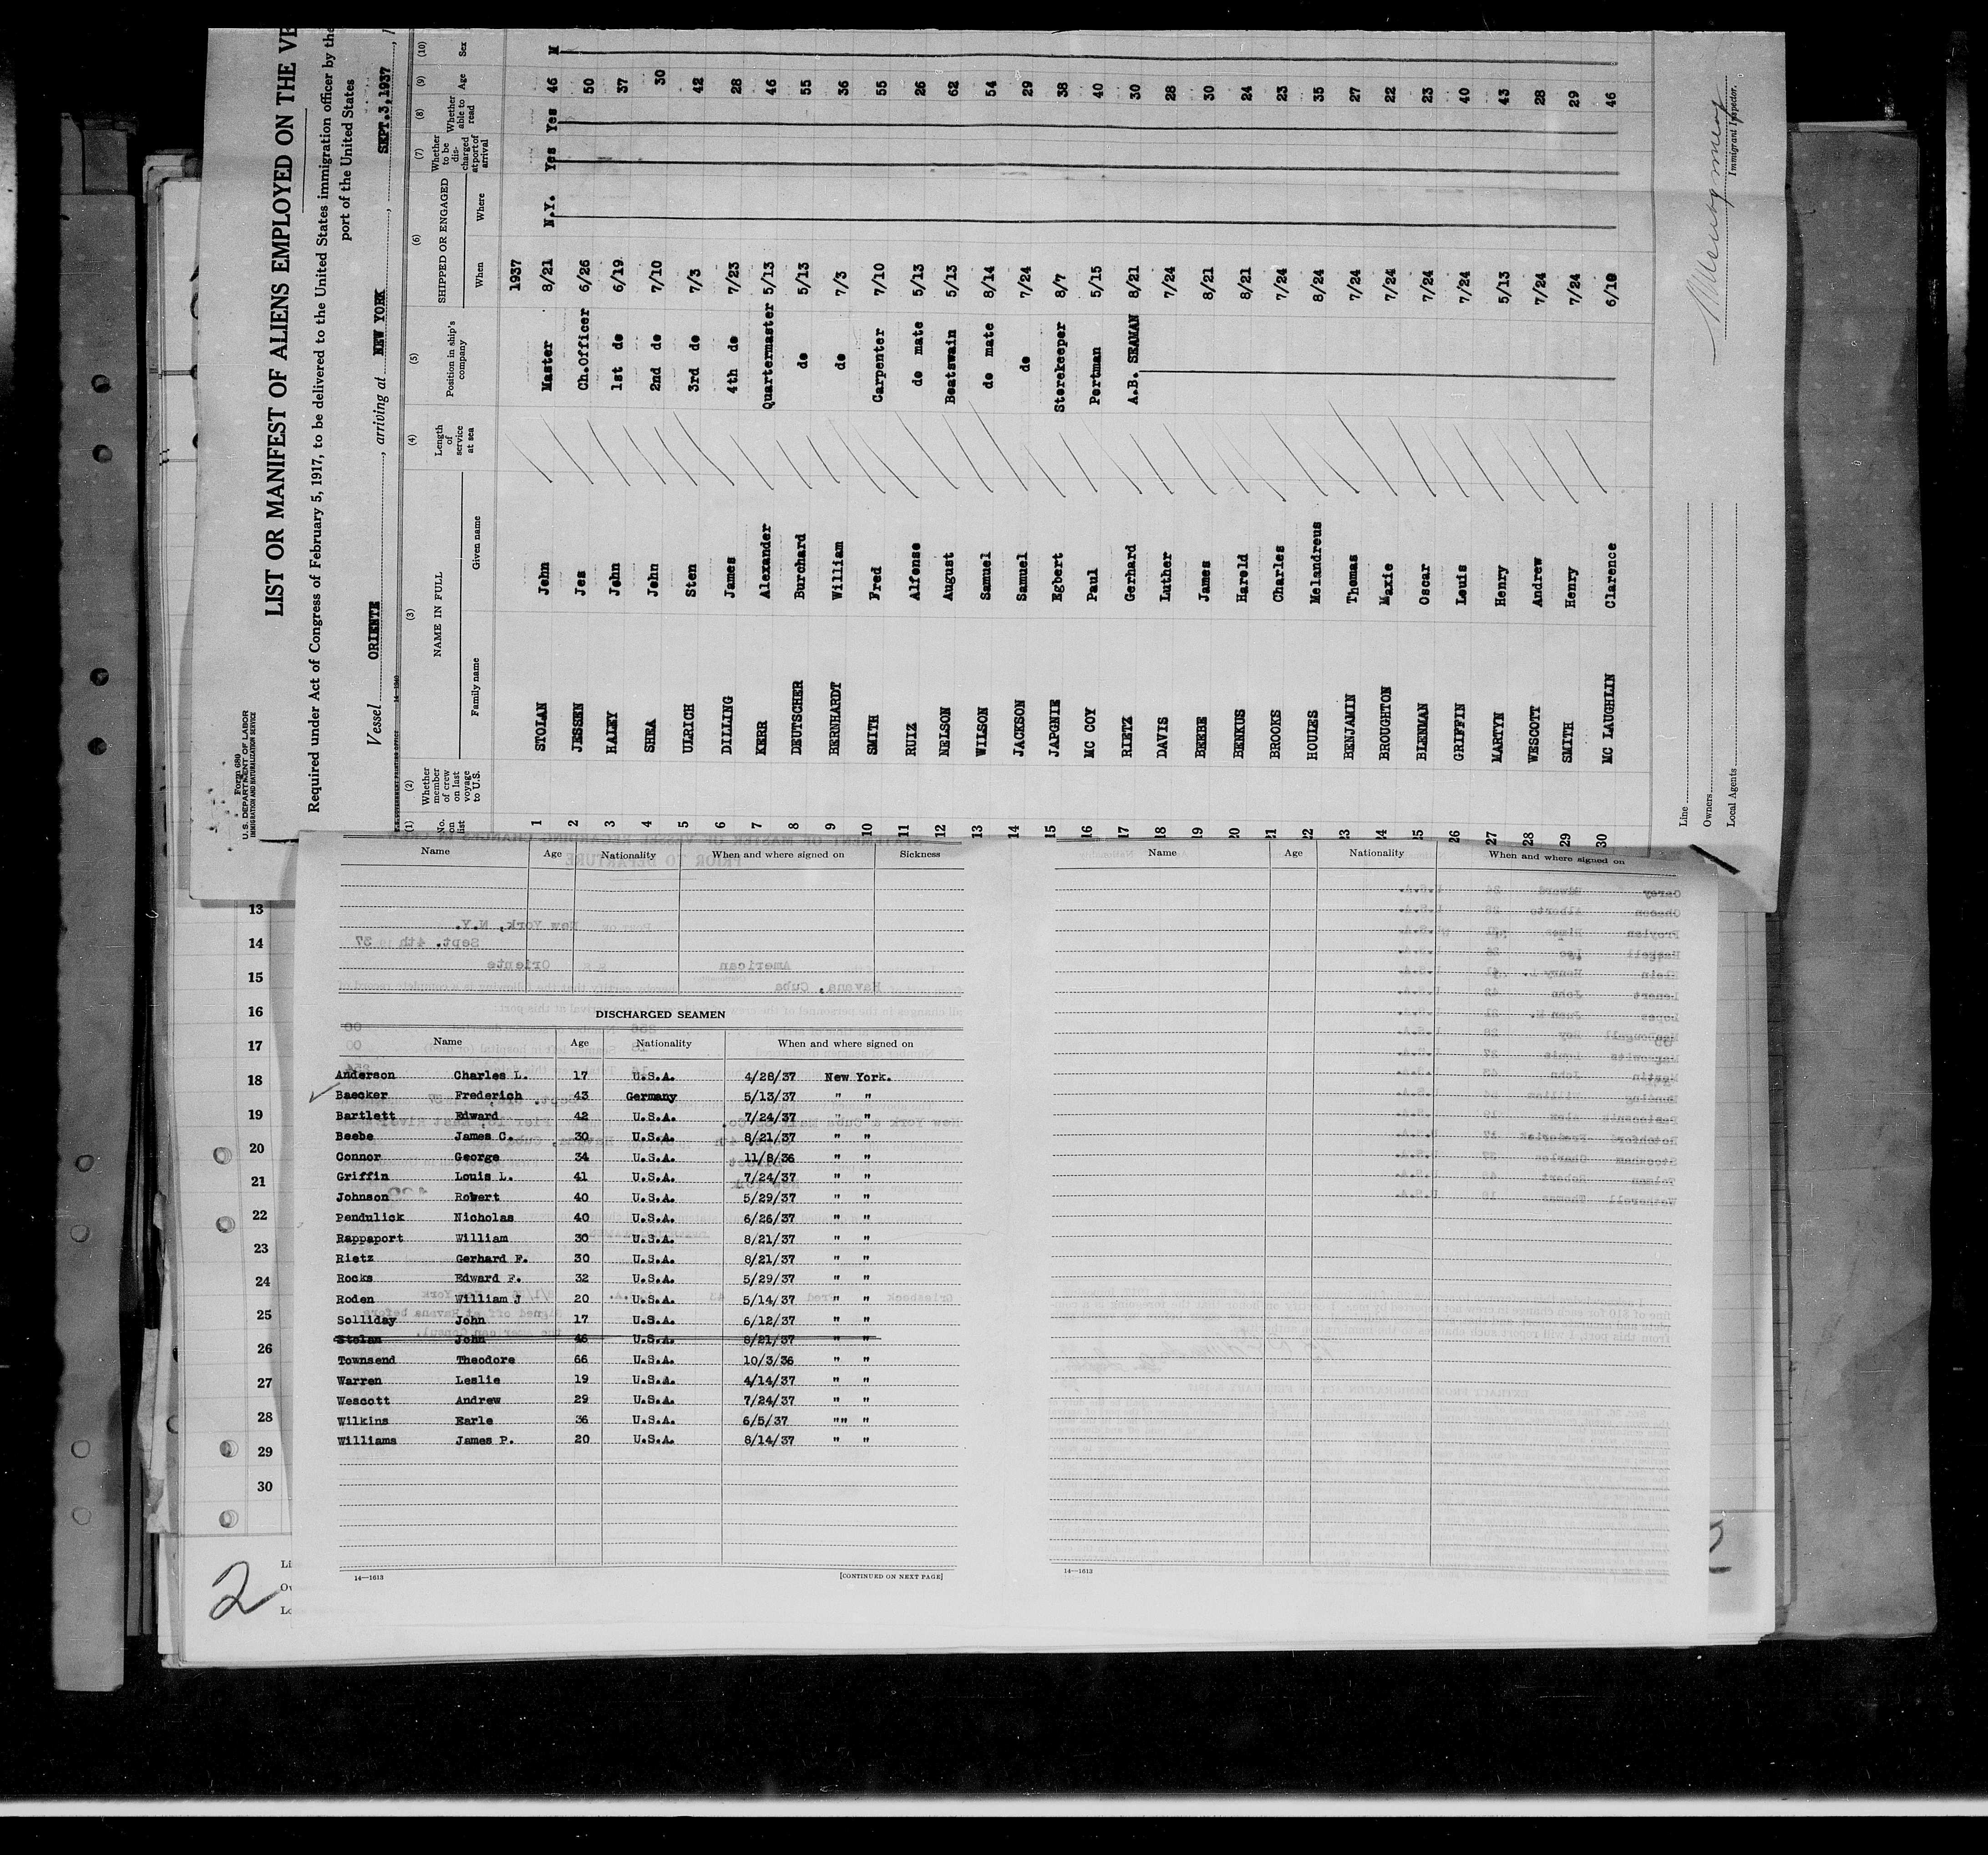 Form 689
U. S. DEPARTMENT OF LABOR
IMMIGRATION AND NATURALIZATION SERVICE
LIST OR MANIFEST OF ALIENS EMPLOYED ON THE VE
Required under Act of Congress of February 5, 1917, to be delivered to the United States immigration officer by the
port of the United States
Vessel ORIENTE, arriving at NEW YORK, SEPT.3,1937, 1
(1) (2) (3) (4) (5) (6) (7) (8) (9) (10)
No. on list Whether member of crew on last voyage to U.S. NAME IN FULL Length of service at sea Position in ship's company SHIPPED OR ENGAGED Whether to be discharged at port of arrival Whether able to read Age Sex
Family name Given name When Where
1937
1 STOLAN John Master 8/21 N.Y. Yes Yes 46 M
2 JESSEN Jes Ch.Officer 6/26 50
3 HALEY John 1st do 6/19 37
4 SHEA John 2nd do 7/10 30
5 ULRICH Sten 3rd do 7/3 42
6 DILLING James 4th do 7/23 28
7 KERR Alexander Quartermaster 5/13 46
8 DEUTSCHER Burchard do 5/13 55
9 BERNHARDT William do 7/3 36
10 SMITH Fred Carpenter 7/10 55
11 RUIZ Alfonso do mate 5/13 26
12 NELSON August Boatswain 5/13 62
13 WILSON Samuel do mate 8/14 54
14 JACKSON Samuel do 7/24 29
15 JAPGNIE Egbert Storekeeper 8/7 38
16 MC COY Paul Portman 5/15 40
17 RIETZ Gerhard A.B. SEAMAN 8/21 30
18 DAVIS Luther 7/24 28
19 BEEBE James 8/21 30
20 BENKUS Harold 8/21 24
21 BROOKS Charles 7/24 23
22 HOULES Melandreus 8/24 35
23 BENJAMIN Thomas 7/24 27
24 BROUGHTON Maxie 7/24 22
25 BLENMAN Oscar 7/24 23
26 GRIFFIN Louis 7/24 40
27 MARTYN Henry 5/13 43
28 WESCOTT Andrew 7/24 28
29 SMITH Henry 7/24 29
30 MC LAUGHLIN Clarence 6/10 46
Line
Owners
Local Agents
Immigrant Inspector.
Name Age Nationality When and where signed on Sickness
DISCHARGED SEAMEN
Name Age Nationality When and where signed on
Anderson Charles L. 17 U.S.A. 4/28/37 New York.
Baecker Frederich 43 Germany 5/13/37 " "
Bartlett Edward 42 U.S.A. 7/24/37 " "
Beebe James C. 30 U.S.A. 8/21/37 " "
Connor George 34 U.S.A. 11/8/36 " "
Griffin Louis L. 41 U.S.A. 7/24/37 " "
Johnson Robert 40 U.S.A. 5/29/37 " "
Pendulick Nicholas 40 U.S.A. 6/26/37 " "
Rappaport William 30 U.S.A. 8/21/37 " "
Rietz Gerhard F. 30 U.S.A. 8/21/37 " "
Rocks Edward F. 32 U.S.A. 5/29/37 " "
Roden William J 20 U.S.A. 5/14/37 " "
Solliday John 17 U.S.A. 6/12/37 " "
Stolan John 46 U.S.A. 8/21/37 " "
Townsend Theodore 66 U.S.A. 10/3/36 " "
Warren Leslie 19 U.S.A. 4/14/37 " "
Wescott Andrew 29 U.S.A. 7/24/37 " "
Wilkins Earle 36 U.S.A. 6/5/37 "" "
Williams James P. 20 U.S.A. 8/14/37 " "
14—1613 [CONTINUED ON NEXT PAGE]
Name Age Nationality When and where signed on
14—1613
13
14
15
16
17
18
19
20
21
22
23
24
25
26
27
28
29
30
Li
Ow
Lo
2